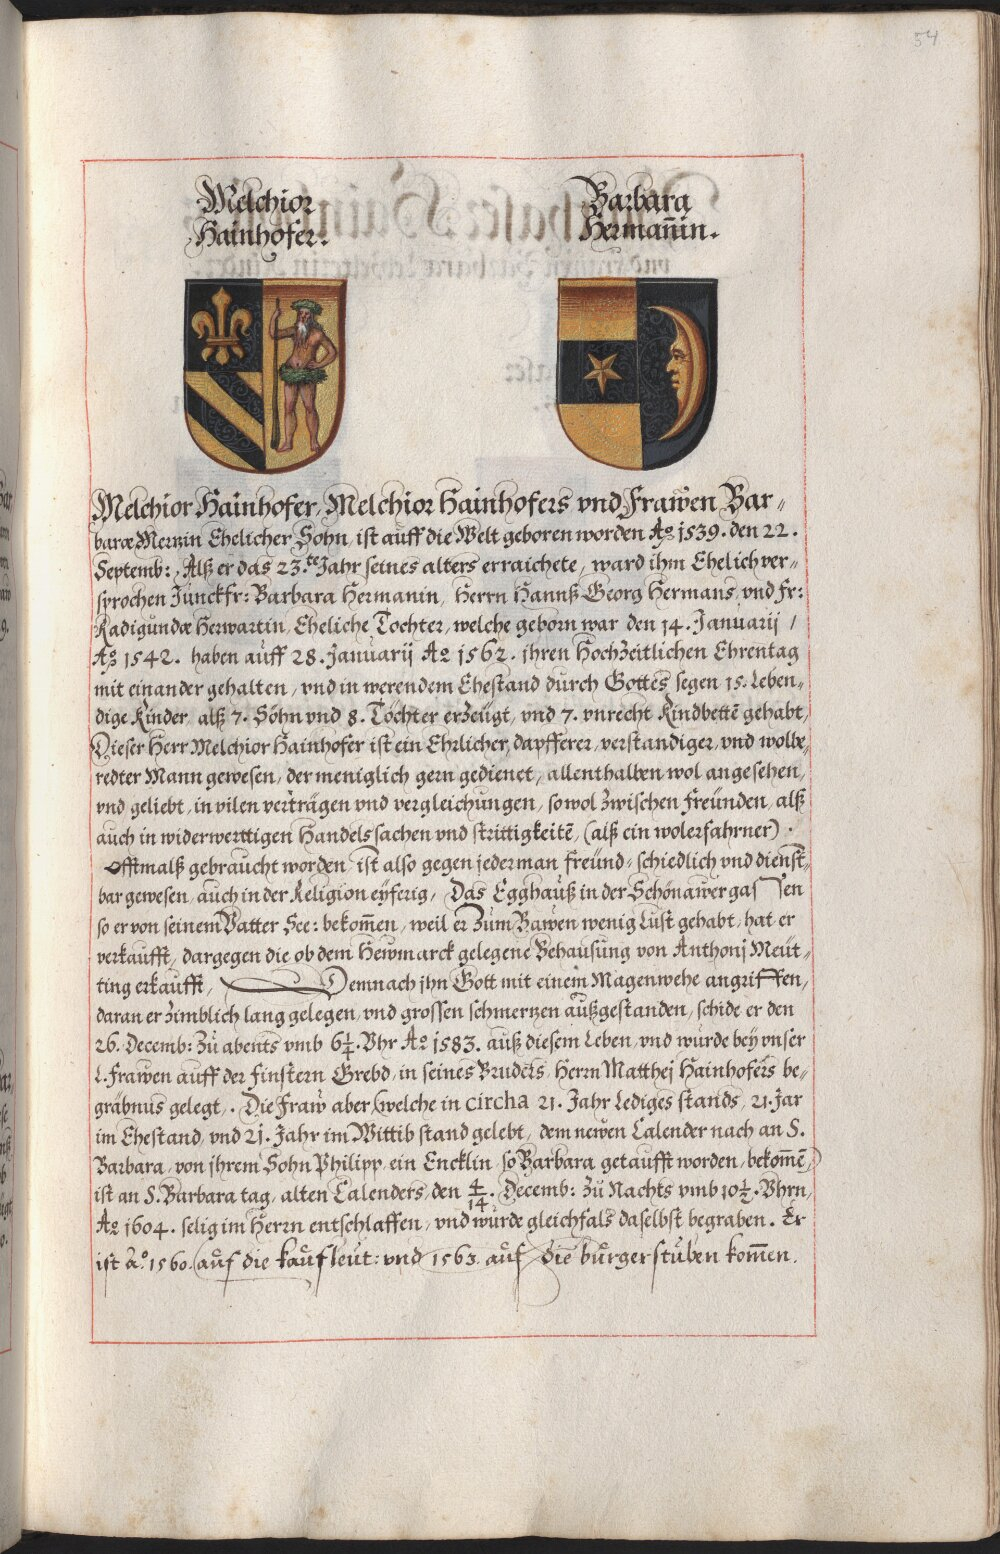 54
Melchior
Hainhofer.
Barbara
Hermañin.
Melchior Hainhofer, Melchior Hainhofers vnd Frawen Bar-
baræ Mertzin Ehelicher Sohn, ist auff die Welt geboren worden Aº 1539. den 22.
Septemb: Alß er das 23.te Jahr seines alters erraichete, ward ihm Ehelich ver-
sprochen Junckfr: Barbara Hermanin, Herrn Hannß Georg Hermans, vnd Fr:
Radigundæ Herwartin, Eheliche Tochter, welche geborn war den 14. Januarij /
Aº 1542. haben auff 28. Januarij Aº 1562. ihren Hochzeitlichen Ehrentag
mit einander gehalten, vnd in werendem Ehestand durch Gottes segen 15. Leben-
dige Kinder, alß 7. Söhn vnd 8. Töchter erzeügt, vnd 7. vnrecht Kindbettē gehabt,
Dieser Herr Melchior Hainhofer ist ein Ehrlicher, dapfferer, verstandiger, vnd wolbe,
redter Mann gewesen, der meniglich gern gedienet, allenthalben wol angesehen,
vnd geliebt, in vilen verträgen vnd vergleichungen, sowol zwischen freünden, alß
auch in widerwerttigen Handelssachen vnd strittigkeitē, (alß ein wolerfahrner)
Offtmalß gebraucht worden, ist also gegen jederman freünd-schiedlich vnd dienst-
bar gewesen, auch in der Religion eyferig, Das Egghauß in der Schönawergassen
so er von seinem Vatter See: bekom̄en, weil er zum Bawen wenig Lust gehabt, hat er
verkaufft, dargegen die ob dem Hewmarck gelegene Behausung von Anthonj Meut-
ting erkaufft, Demnach ihn Gott mit einem Magenwehe angriffen,
daran er zimblich lang gelegen, vnd grossen schmertzen außgestanden, schide er den
26. Decemb: zu abents vmb 6¼. Vhr Aº 1583. auß diesem Leben, vnd wurde bey vnser
L. Frawen auff der finstern Grebd, in seines Bruders, Herrn Matthej Hainhofers be-
gräbnus gelegt,. Die Fraw aber (welche in circha 21. Jahr lediges stands, 21. Jar
im Ehestand, vnd 21. Jahr im Wittibstand gelebt, dem newen Calender nach an S.
Barbara, von jhrem Sohn Philipp, ein Encklin, so Barbara getaufft worden, bekom̄ē)
ist an S. Barbara tag, alten Calenders, den 4/14. Decemb: zu Nachts vmb 10½. Vhrn,
Aº 1604. selig im Herrn entschlaffen, vnd wurde gleichfals daselbst begraben. Er
ist Aº. 1560. auf die kaufleut: vnd 1563. auf die burgerstuben kom̄en.